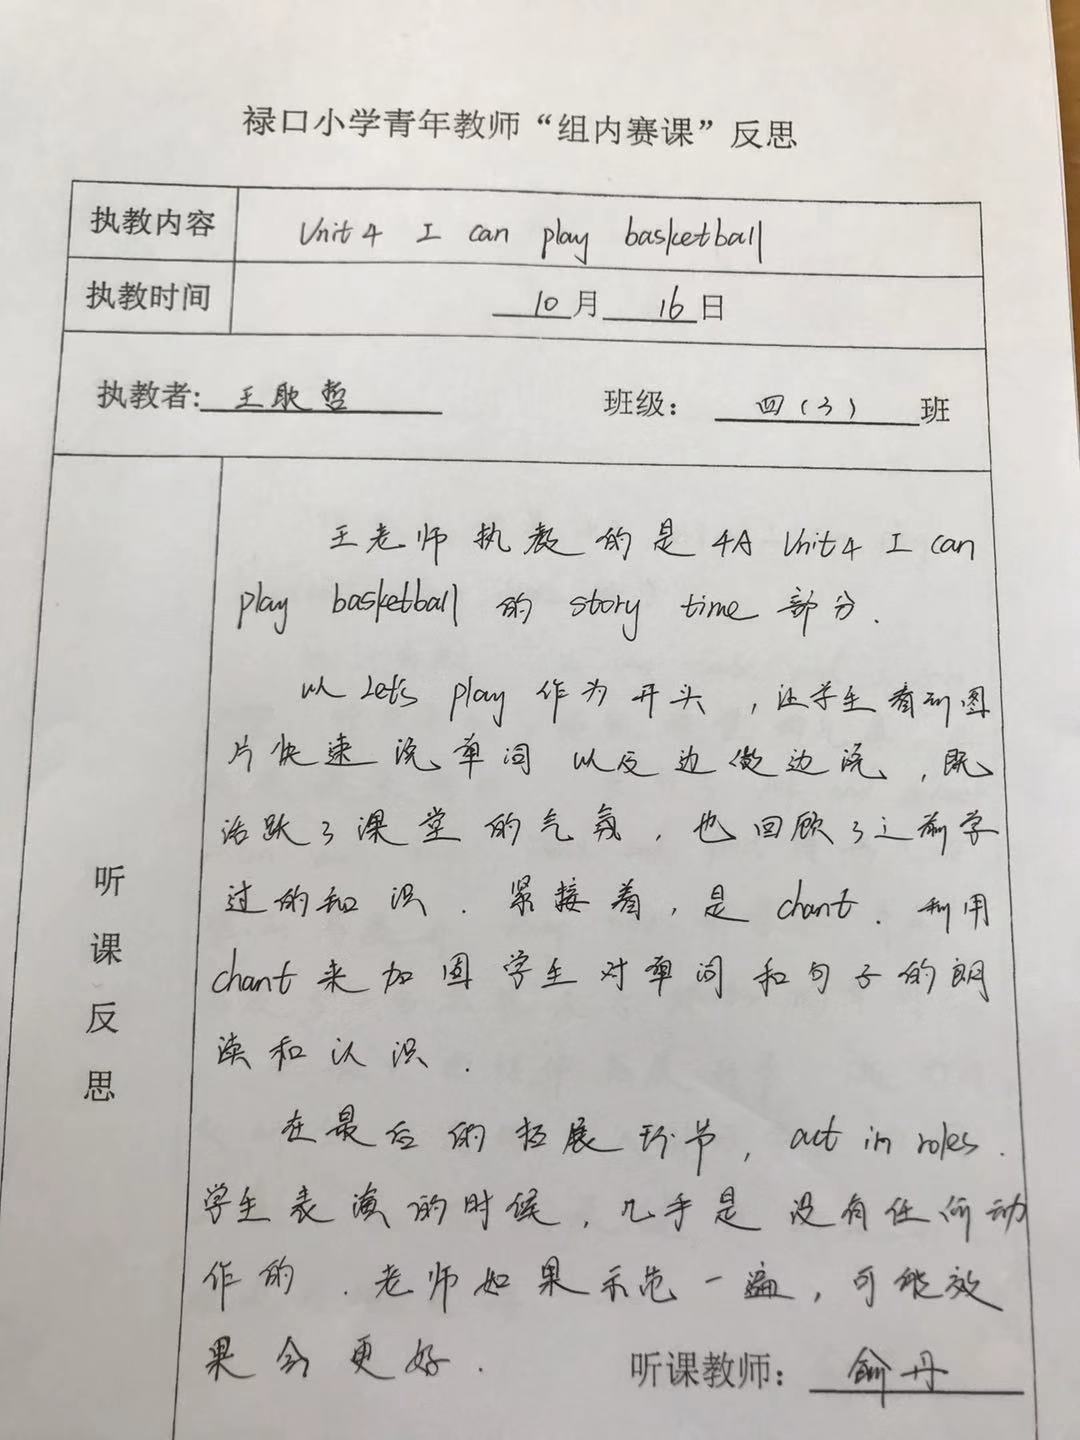 禄口小学青年教师“组内赛课”反思
执教内容 Unit 4 I can play basketball
执教时间 10月 16日
执教者: 王耿哲 班级: 四(3) 班
听课反思
王老师执教的是 4A Unit 4 I can
play basketball 的 story time 部分.
以 Let's play 作为开头,让学生看到图
片快速说单词 以及边做边说,既
活跃了课堂的气氛,也回顾了之前学
过的知识. 紧接着,是 chant. 利用
chant 来加固学生对单词和句子的朗
读和认识.
在最后的拓展环节, act in roles.
学生表演的时候,几乎是没有任何动
作的. 老师如果示范一遍,可能效
果会更好.
听课教师: 俞丹